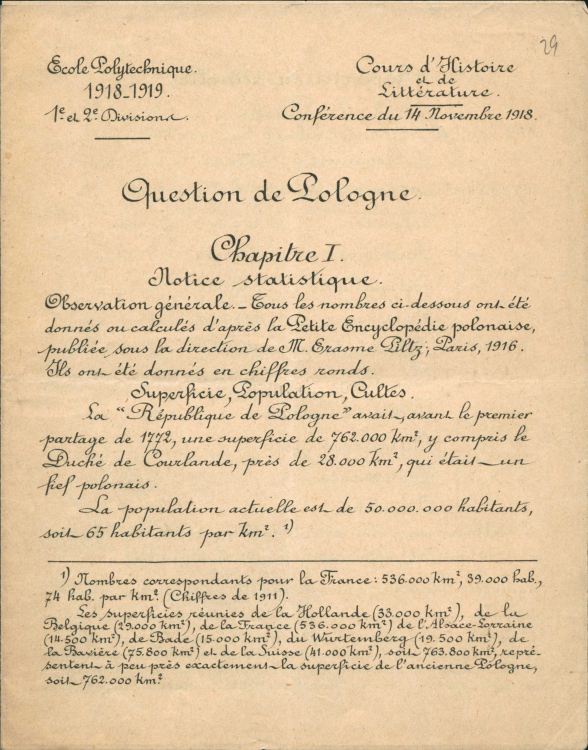 29
Ecole Polytechnique.
1918-1919.
1e et 2e Divisions.
Cours d'Histoire
et de
Littérature.
Conférence du 14 Novembre 1918.
Question de Pologne.
Chapitre I.
Notice statistique.
Observation générale. - Tous les nombres ci-dessous ont été
donnés ou calculés d'après la Petite Encyclopédie polonaise,
publiée sous la direction de M. Erasme Piltz; Paris, 1916.
Ils ont été donnés en chiffres ronds.
Superficie, Population, Cultes.
La "République de Pologne" avait, avant le premier
partage de 1772, une superficie de 762.000 km², y compris le
Duché de Courlande, près de 28.000 km², qui était un
fief polonais.
La population actuelle est de 50.000.000 habitants,
soit 65 habitants par km². 1)
1) Nombres correspondants pour la France: 536.000 km², 39.000 hab.,
74 hab. par km². (Chiffres de 1911).
Les superficies réunies de la Hollande (33.000 km²), de la
Belgique (29.000 km²), de la France (536.000 km²) de l'Alsace-Lorraine
(14.500 km²), de Bade (15.000 km²), du Wurtemberg (19.500 km²), de
la Bavière (75.800 km²) et de la Suisse (41.000 km²), soit 763.800 km², repré-
sentent à peu près exactement la superficie de l'ancienne Pologne,
soit 762.000 km².